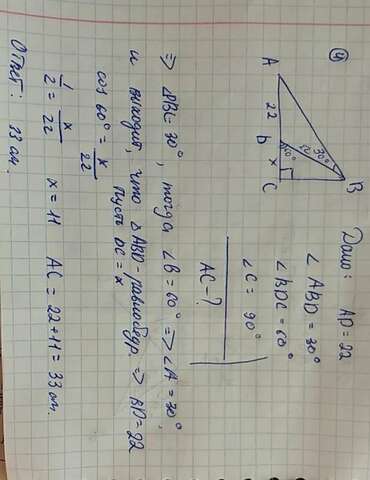 ④
A
B
C
D
22
22
30°
60°
x
Дано: AD = 22
∠ABD = 30°
∠BDC = 60°
∠C = 90°
AC - ?
⇒ ∠DBC = 30°, тогда ∠B = 60° ⇒ ∠A = 30°,
и выходит, что △ABD - равнобедр. ⇒ BD = 22
Пусть DC = x
cos 60° = x/22
1/2 = x/22 x = 11 AC = 22 + 11 = 33 см.
Ответ: 33 см.